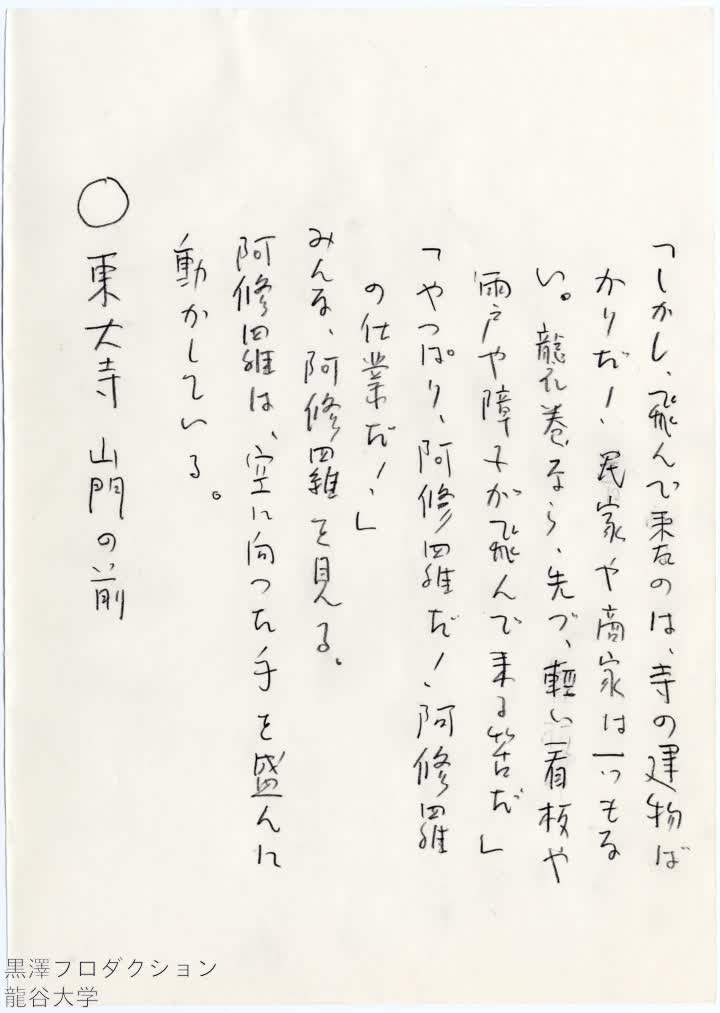 「しかし、飛んで来たのは、寺の建物ば
かりだ！、民家や商家は一つもな
い。龍巻なら、先づ、軽い看板や
雨戸や障子が飛んで来る筈だ」
「やっぱり、阿修羅だ！、阿修羅
の仕業だ！、」
みんな、阿修羅を見る。
阿修羅は、空に向った手を盛んに
動かしている。
○ 東大寺 山門の前
黒澤プロダクション
龍谷大学